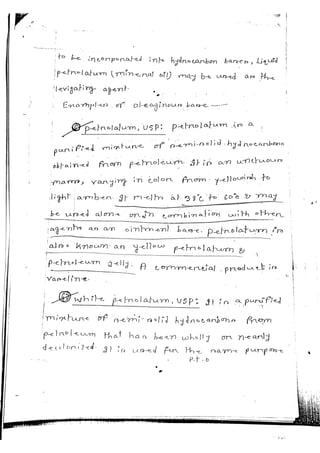 to be incorporated into hydrocarbon bases, Liquid
petrolatum (mineral oil) may be used as the
levigating agent.
Examples of oleaginous base —
petrolatum, USP: petrolatum is a
purified mixture of semi-solid hydrocarbons
obtained from petroleum. It is an unctuous
mass, varying in color from yellowish to
light amber. It melts at 38°c to 60°c & may
be used alone or in combination with other
agents as an ointment base. petrolatum is
also known as yellow petrolatum &
petroleum jelly. A commercial product is
vaseline.
white petrolatum, USP: It is a purified
mixture of semi-solid hydrocarbons from
petroleum that has been wholly or nearly
decolorized. It is used for the same purpose
P.T.O